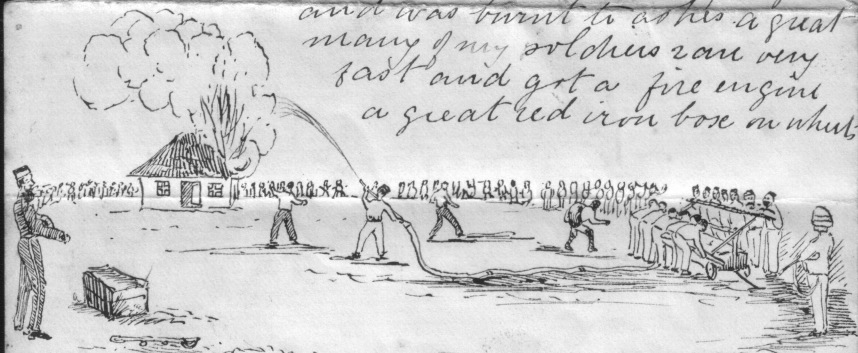 and was burnt to ashes a great
many of my soldiers ran very
fast and got a fire engine
a great red iron box on wheels